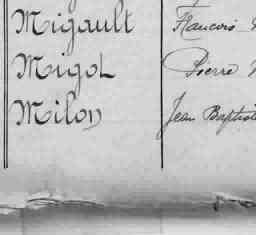 Migault François
Migot Pierre
Milon Jean Baptiste